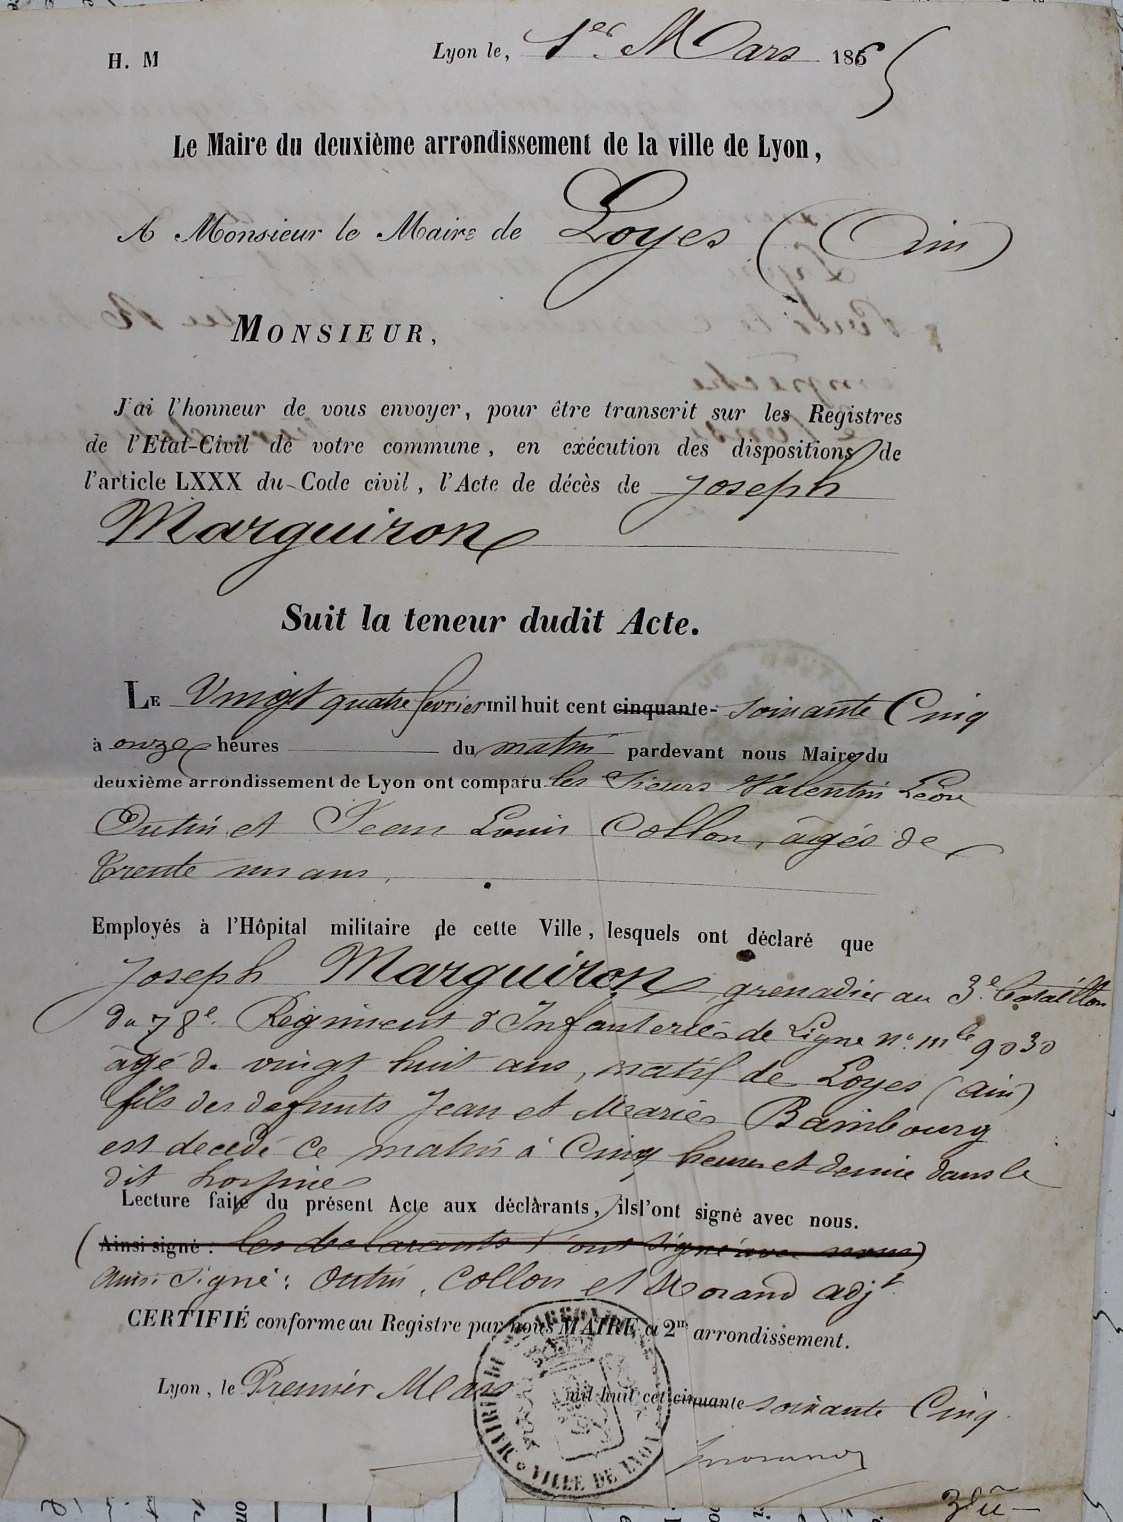 H. M
Lyon le, 1er Mars 1865
Le Maire du deuxième arrondissement de la ville de Lyon,
A Monsieur le Maire de Loyes (Ain)
MONSIEUR,
J'ai l'honneur de vous envoyer, pour être transcrit sur les Registres
de l'Etat-Civil de votre commune, en exécution des dispositions de
l'article LXXX du Code civil, l'Acte de décès de Joseph
Marguiron
Suit la teneur dudit Acte.
LE Vingt quatre fevrier mil huit cent cinquante- soixante Cinq
à onze heures du matin pardevant nous Maire du
deuxième arrondissement de Lyon ont comparu les Sieurs Valentin Léon
Outin et Jean Louis Collon, âgés de
trente un ans.
Employés à l'Hôpital militaire de cette Ville, lesquels ont déclaré que
Joseph Marguiron grenadier au 3e Bataillon
du 78e Régiment d'Infanterie de Ligne no mle 9030
âgé de vingt huit ans, natif de Loyes (ain)
fils des defunts Jean et Marie Bambourg
est decedé ce matin à Cinq heures et demie dans le
dit hospice
Lecture faite du présent Acte aux déclarants, ils l'ont signé avec nous.
(Ainsi signé: les déclarants l'ont signé avec nous)
Ainsi Signé: Outin, Collon et Morand adjt
CERTIFIÉ conforme au Registre par nous MAIRE d 2me arrondissement.
Lyon, le Premier Mars mil huit cet cinquante soixante Cinq
MAIRIE DU 2E ARROND
VILLE DE LYON
Morand